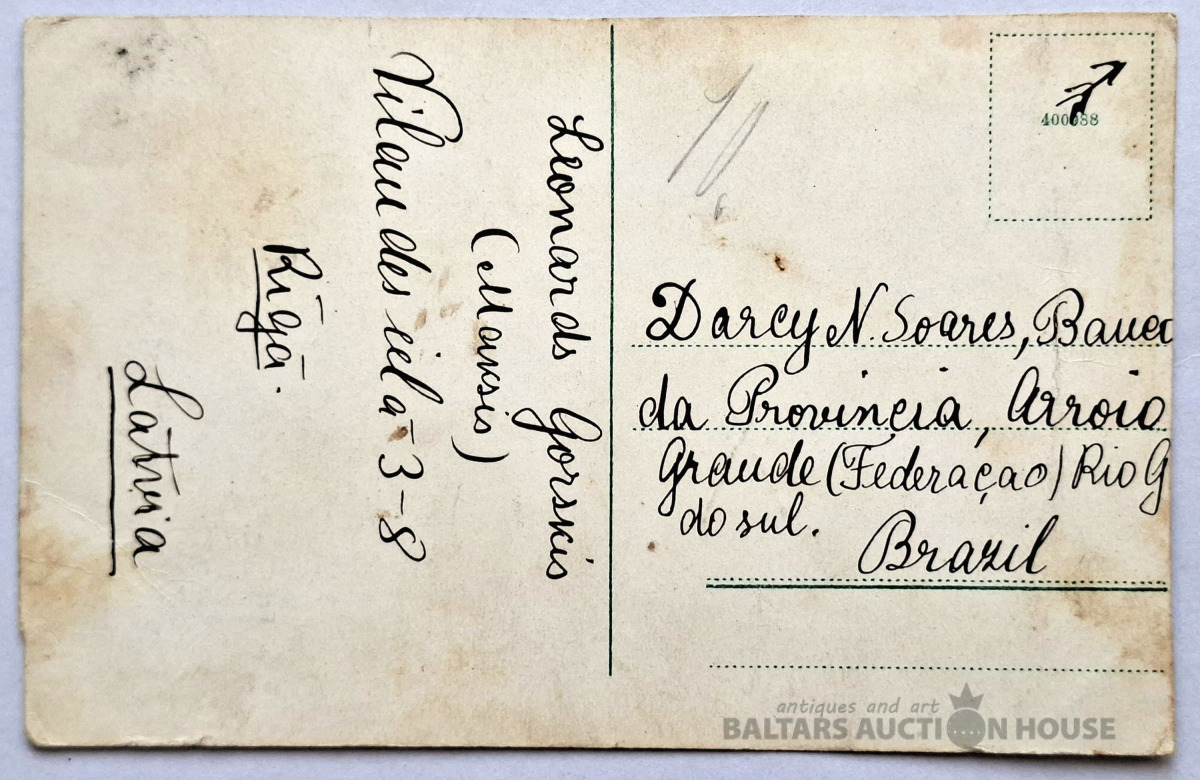 Leonards Gorskis
(Marsis)
Vilandes ielā-3-8
Rīgā.
Latvia
400388
Darcy N. Soares, Banco
da Provincia, Arroio
Grande (Federaçao) Rio G
do sul.
Brazil
antiques and art
BALTARS AUCTION HOUSE